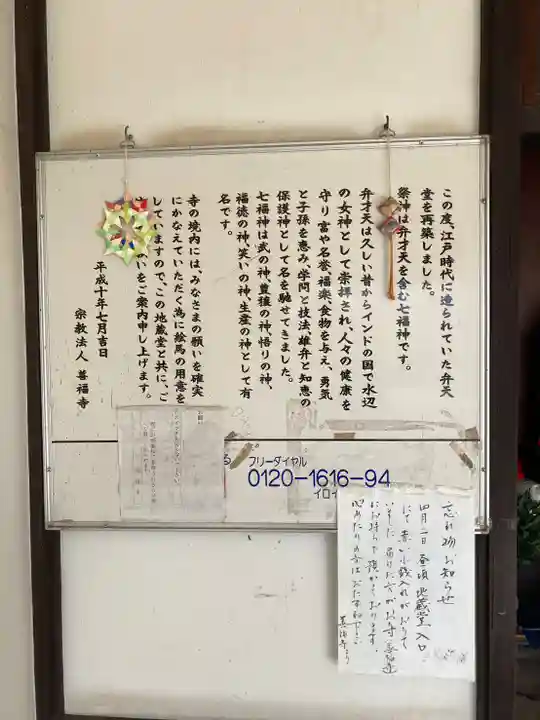 この度、江戸時代に造られていた弁天
堂を再築しました。
祭神は弁才天を含む七福神です。
弁才天は久しい昔からインドの国で水辺
の女神として崇拝され、人々の健康を
守り富や名誉、福楽、食物を与え、勇気
と子孫を恵み、学問と技法、雄弁と知恵の
保護神として名を馳せてきました。
七福神は武の神、豊穣の神、悟りの神、
福徳の神、笑いの神、生産の神として有
名です。
寺の境内には、みなさまの願いを確実
にかなえていただく為に絵馬の用意を
していますので、この地蔵堂と共に、ご
いをご案内申し上げます。
平成十年七月吉日
宗教法人 善福寺
る
フリーダイヤル
0120-1616-94
イロイ
お願い
忘れ物お知らせ
四月二日昼頃地蔵堂入口
にて赤い小銭入れがおちて
いました 届けた方がお寺
にお持ちで預かっております。
心あたりの方はおたずね下さい
善福寺より